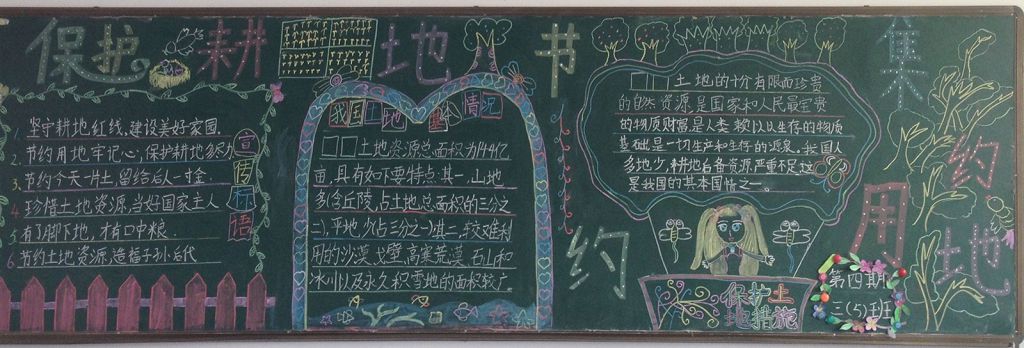 保护耕地 节约集约用地
1. 坚守耕地红线,建设美好家园.
2. 节约用地牢记心,保护耕地多尽力
3. 节约今天一片土,留给后人一寸金
4. 珍惜土地资源,当好国家主人
5. 有了脚下地,才有口中粮.
6. 节约土地资源,造福子孙后代
宣传标语
我国土地基本情况
□□土地资源总面积为144亿
亩,具有如下要特点:其一,山地
多含丘陵,占土地总面积的三分之
二),平地少(占三分之一)其二:较难利
用的沙漠,戈壁,高寒荒漠,石山和
冰川以及永久积雪地的面积较广。
□□土地的十分有限而珍贵
的自然资源,是国家和人民最宝贵
的物质财富,是人类赖以以生存的物质
基础,是一切生产和生存的源泉,我国人
多地少,耕地后备资源严重不足,这
是我国的其本国情之一。
保护土
地措施
第四期
三(5)班